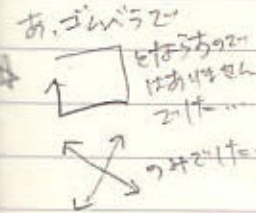 あ、ゴムベラで
とならすので
はありません
でした…
のみでした…